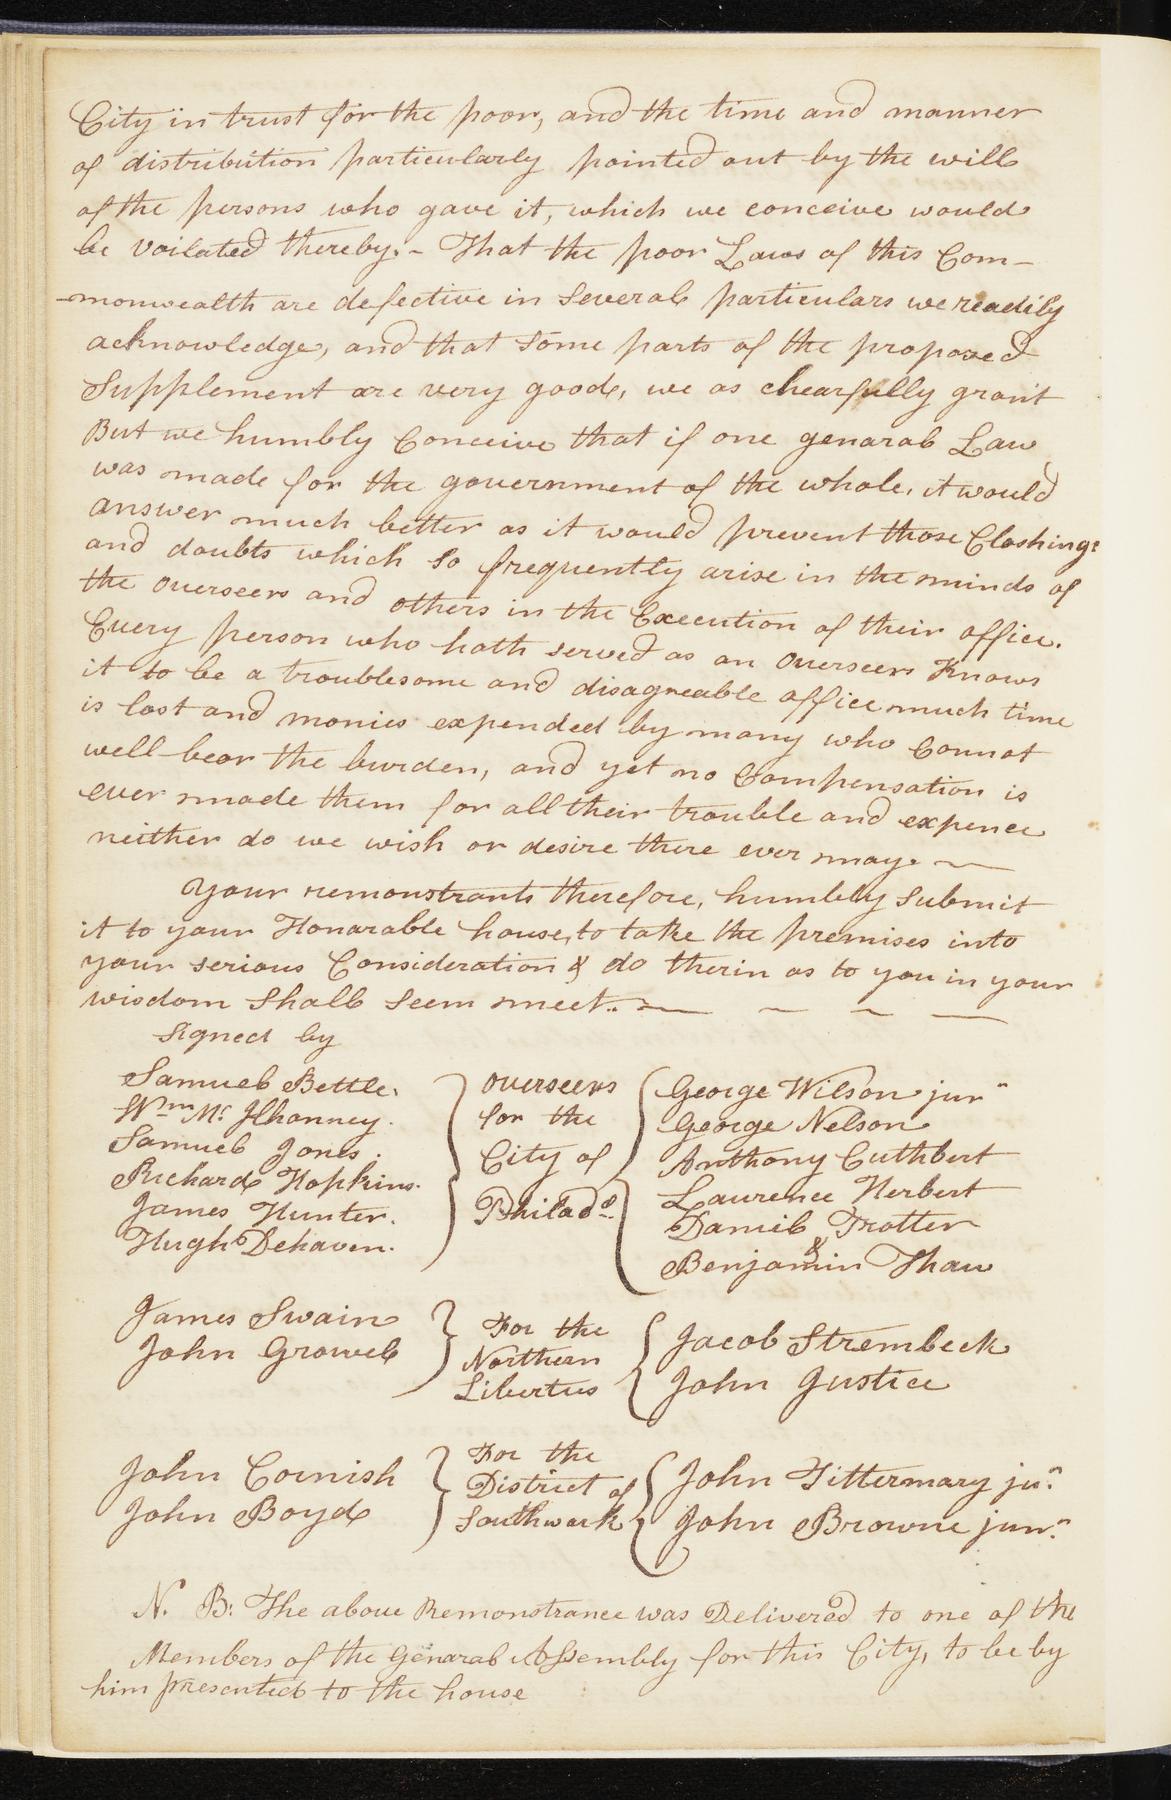 City in trust for the poor, and the time and manner
of distribution particularly pointed out by the will
of the persons who gave it, which we conceive would
be voilated thereby. - That the poor Laws of this Com-
-monwealth are defective in several particulars we readily
acknowledge, and that some parts of the proposed
Supplement are very good, we as chearfully grant
But we humbly Conceive that if one genaral Law
was made for the government of the whole, it would
answer much better as it would prevent those Clashings
and doubts which so frequently arise in the minds of
the overseers and others in the Execution of their office.
Every person who hath served as an Overseers Knows
it to be a troublesome and disagreable office much time
is lost and monies expended by many who Connot
well bear the burden, and yet no Compensation is
ever made them for all their trouble and expence
neither do we wish or desire there ever may. ~
Your remonstrants therefore, humbly submit
it to your Honarable house, to take the premises into
your serious Consideration & do therin as to you in your
wisdom shall seem meet. ~ ~ ~ ~
Signed by
Samuel Bettle.
Wm. Mc. Ilhanney.
Samuel Jones.
Richard Hopkins.
James Hunter.
Hugh Dehaven.
overseers
for the
City of
Philada.
George Wilson junr
George Nelson
Anthony Cuthbert
Laurence Herbert
Daniel Trotter
&
Benjamin Thaw
James Swain
John Growel
For the
Northern
Liberties
Jacob Strembeck
John Justice
John Cornish
John Boyd
For the
District of
Southwark
John Fittermary jur.
John Browne junr.
N. B: The above Remonstrance was Delivered to one of the
Members of the Genaral Assembly for this City, to be by
him presented to the house